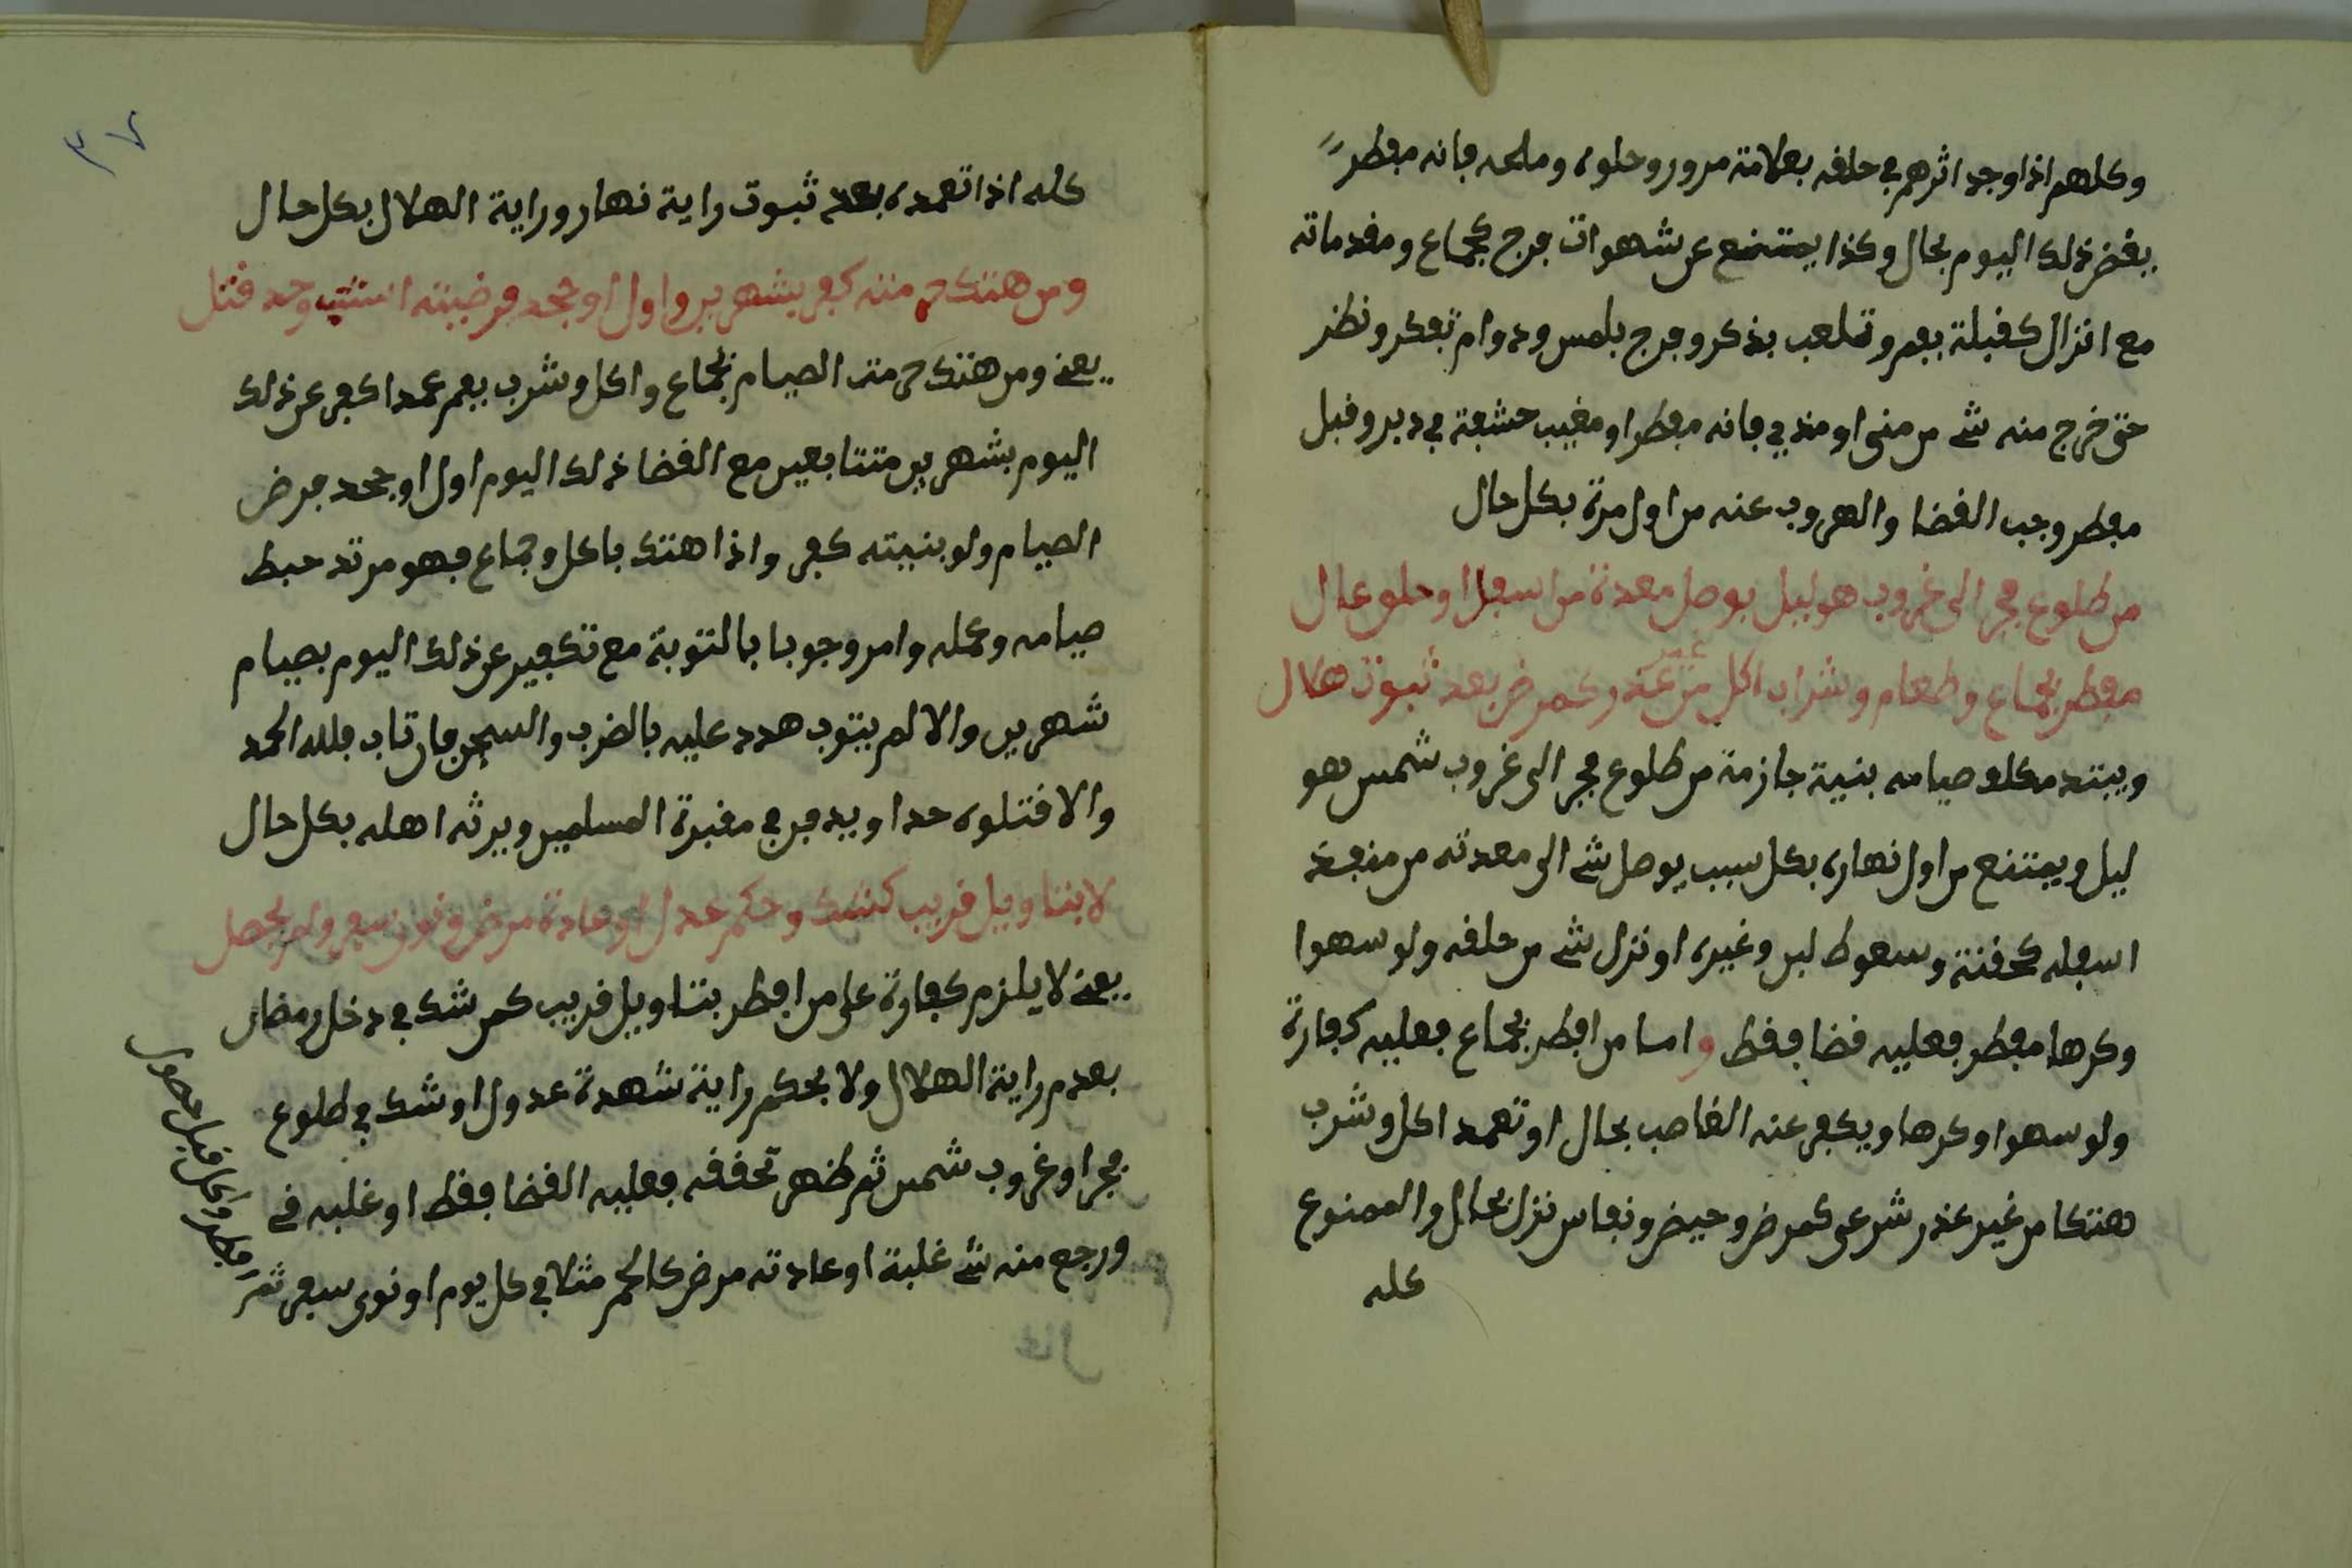 وكلهم اذا وجد اثرهم في حلفه بعلامة مرور وحلوه وملحه فانه مفطر
يفض ذلك اليوم بحال وكذا يمتنع عن شهوات فرج كجماع ومفدماته
مع انزال كفبلة بفم وتلعب بذكر وفرج بلمس ودوام تفكر ونظر
حتى خرج منه شے من منى او مذي فانه مفطر او مغيب حشفة في دبر وفبل
مفطر وجب الفضا والهروب عنه من اول مرة بكل حال
من طلوع فجر الى غروب هو ليل يوصل معدة من اسفل او حلو عال
مفطر بجماع وطعام وشراب اكل من غير وكمرض بعد ثبوت هلال
ويبتد مكلف صيامه بنية جازمة من طلوع فجر الى غروب شمس هو
ليل ويمتنع من اول نهاره بكل سبب يوصل شے الى معدته من منفذ
اسفله كحفنة وسعوط لبن وغيره او نزل شے من حلفه ولو سهوا
وكرها مفطر فعليه فضا ففط واما من افطر بجماع فعليه كفارة
ولو سهوا وكرها ويكفر عنه الغاصب بحال او تعمد اكل وشرب
هتكا من غير عذر شرعى كمرض وحيض ونفاس نزل بحال والممنوع
كله
٣٧
كله اذا تعمده بعد ثبوت راية نهار وراية الهلال بكل حال
ومن هتك حرمته كفر بشهرين واول او جحد فرضيته استتب وحد فتل
يعنے ومن هتك حرمت الصيام بجماع واكل وشرب بفم عمدا كفر عن ذلك
اليوم بشهرين متتابعين مع الفضا ذلك اليوم اول او جحد فرض
الصيام ولو بنيته كفر واذا هتك باكل وجماع فهو مرتد حبط
صيامه وعمله وامر وجوبا بالتوبة مع تكفير عن ذلك اليوم بصيام
شهرين والا لم يتوب هدد عليه بالضرب والسجن فان تاب فلله الحمد
والا فتلوه حدا ويدفن في مفبرة المسلمين ويرثه اهله بكل حال
لا بتاويل فريب كشك وحكم عدل او عادة مرض ونوى سفر ولم يحصل
يعنے لا يلزم كفارة على من افطر بتاويل فريب كمن شك في دخل رمضان
بعدم راية الهلال ولا بحكم راية شهدة عدول او شك في طلوع
فجر او غروب شمس ثم ظهر تحففه فعليه الفضا ففط او غلبه فے
ورجع منه شے غلبة او عادته مرض كالحمر مثلا في كل يوم او نوى سفر ثم
افطر واكل فبل حصول